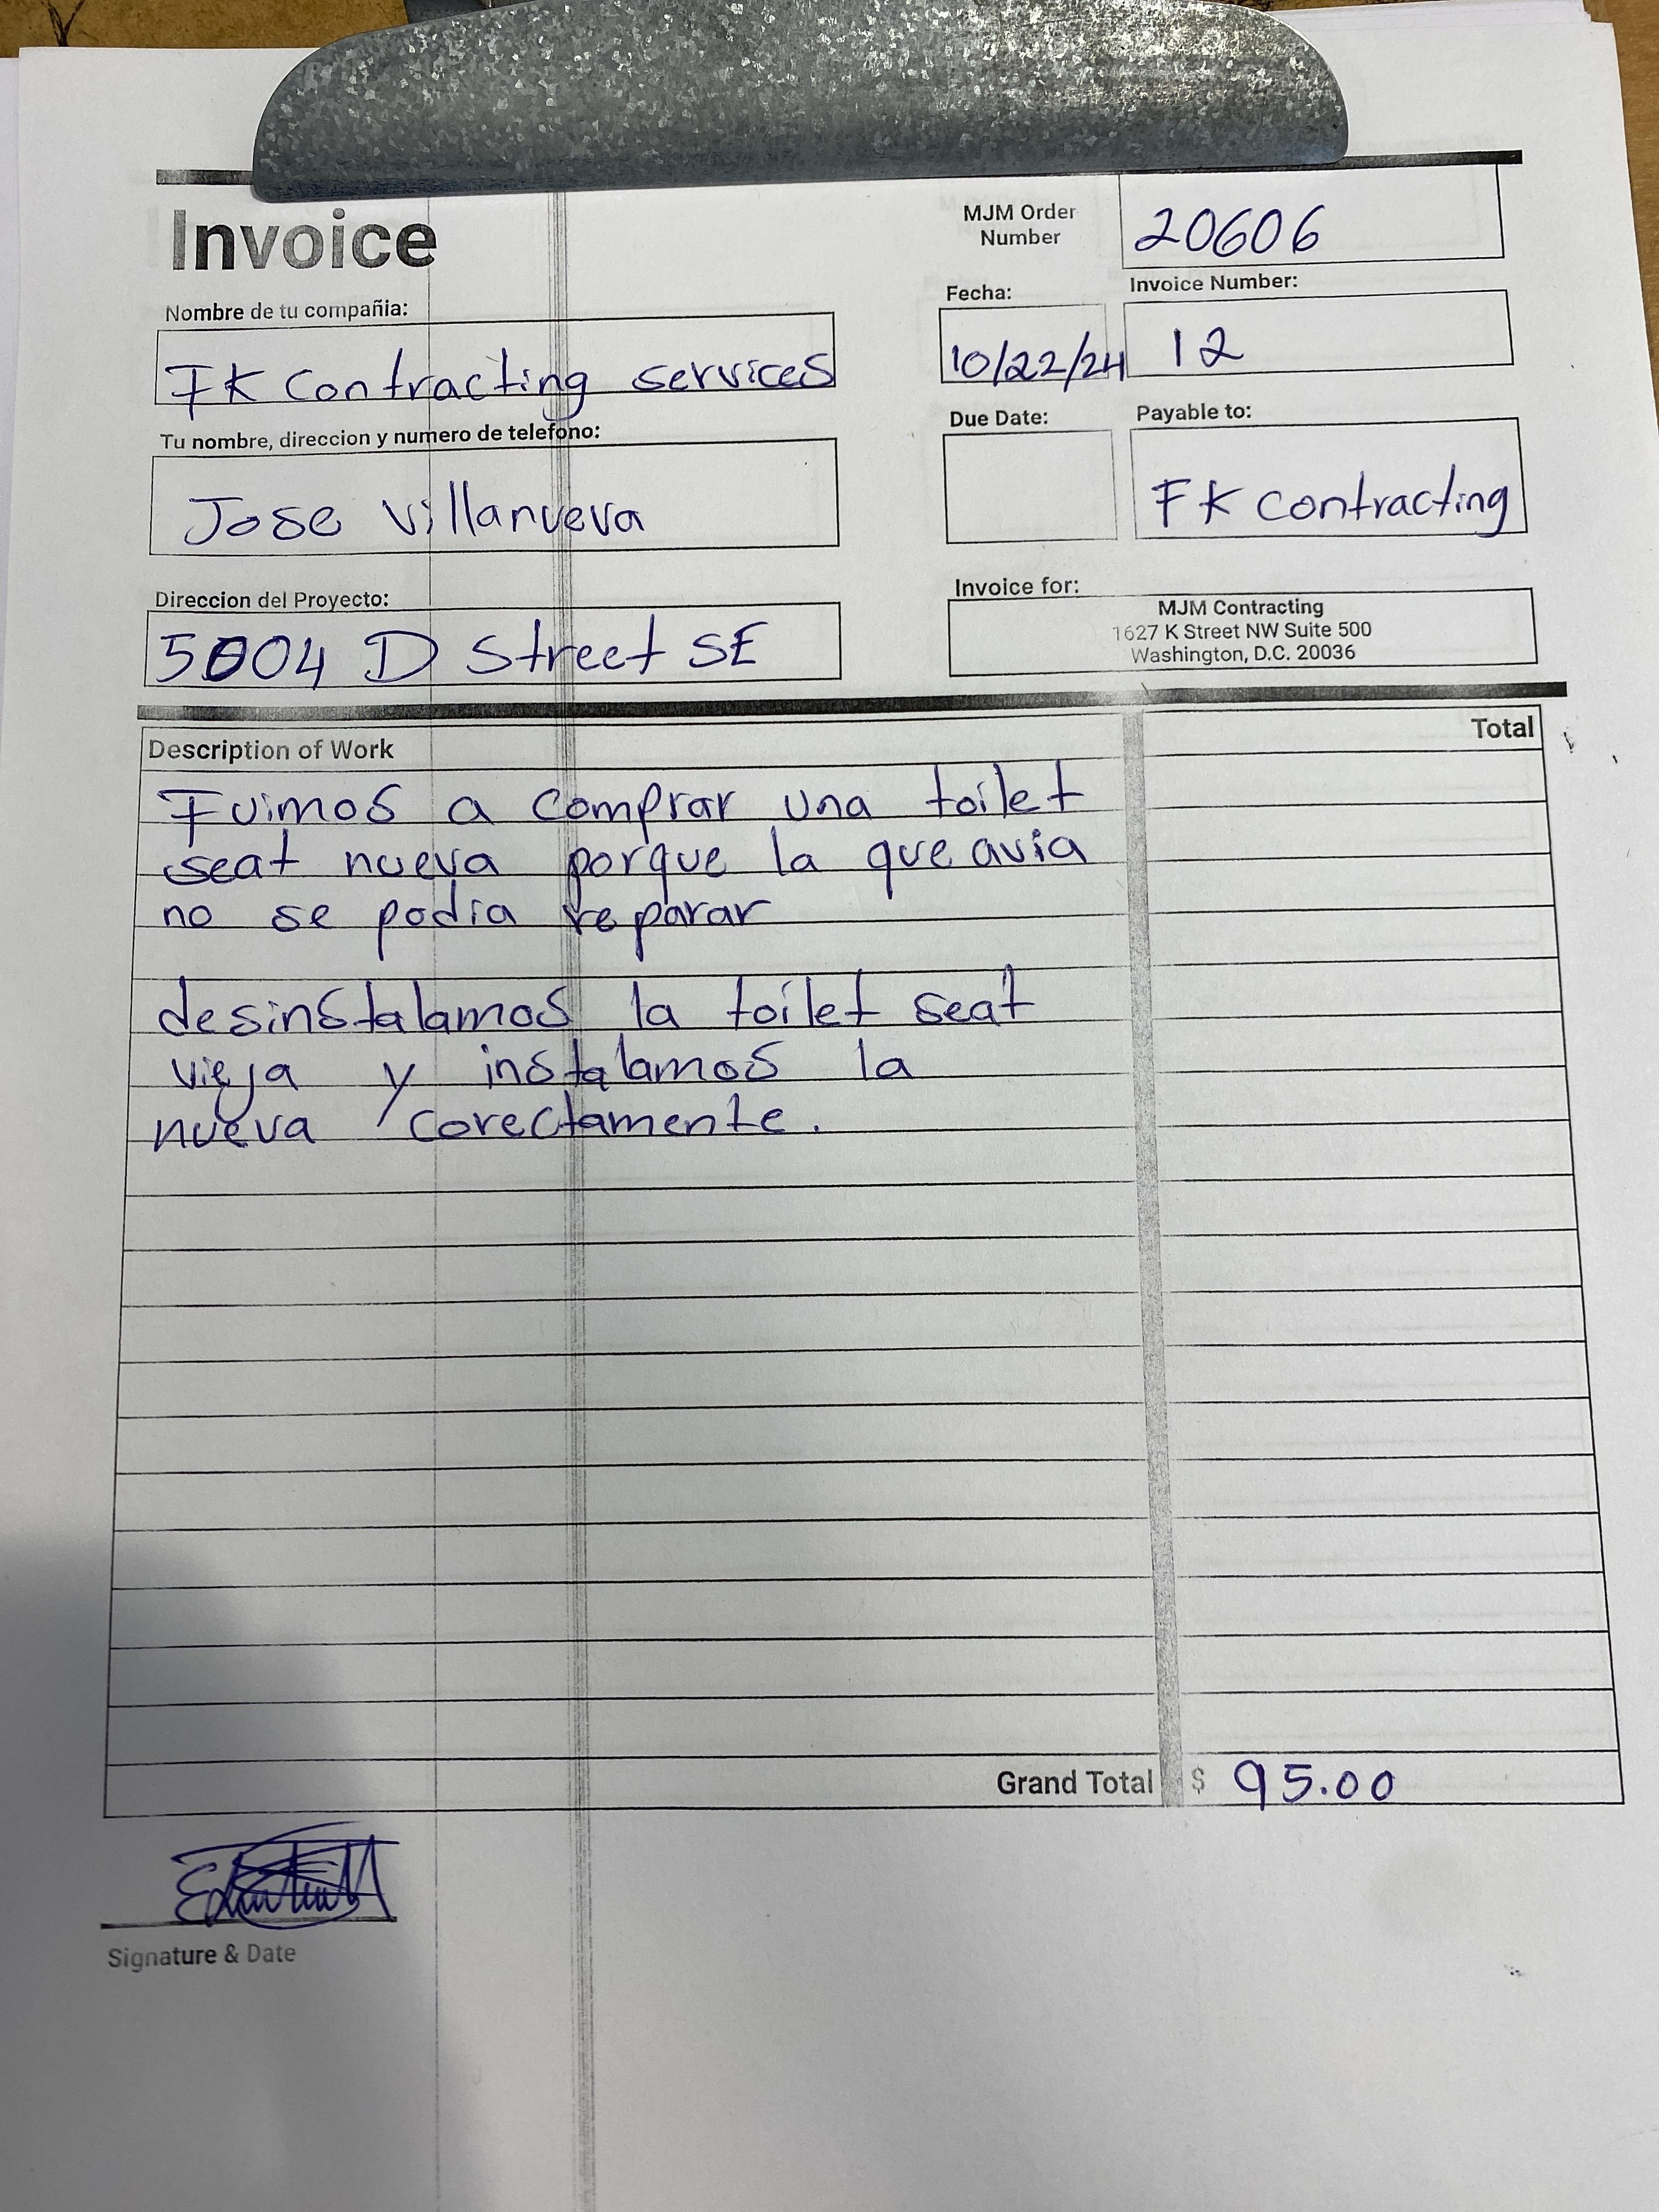 Invoice
MJM Order
Number
20606
Nombre de tu compañia:
FK Contracting services
Fecha:
10/22/24
Invoice Number:
12
Tu nombre, direccion y numero de telefono:
Jose Villanueva
Due Date:
Payable to:
FK contracting
Direccion del Proyecto:
5004 D Street SE
Invoice for:
MJM Contracting
1627 K Street NW Suite 500
Washington, D.C. 20036
Description of Work
Total
Fuimos a comprar una toilet
seat nueva porque la que avia
no se podia reparar
desinstalamos la toilet seat
vieja y instalamos la
nueva corectamente.
Grand Total $ 95.00
Signature & Date